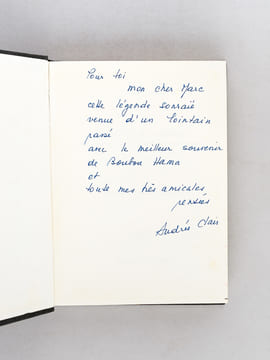 Pour toi
mon cher Marc
cette légende sonraïe
venue d'un lointain
passé
avec le meilleur souvenir
de Boubou Hama
et
toute mes très amicales
pensées
André Clair